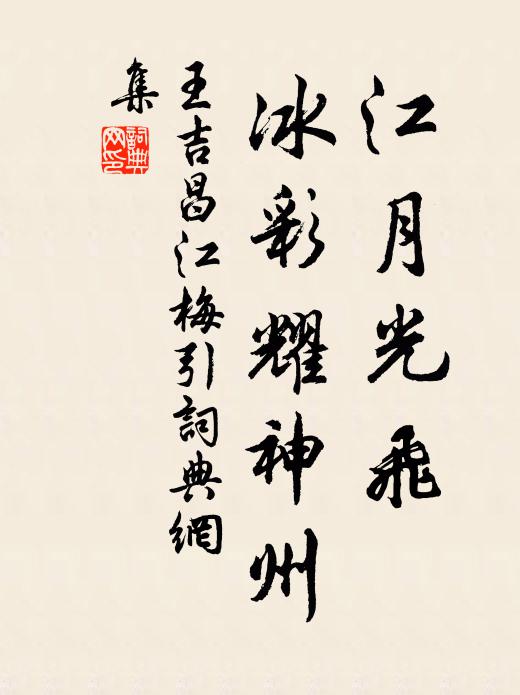 江月光飛
冰彩耀神州
王吉昌江梅引詞典網
集
詞典
网印